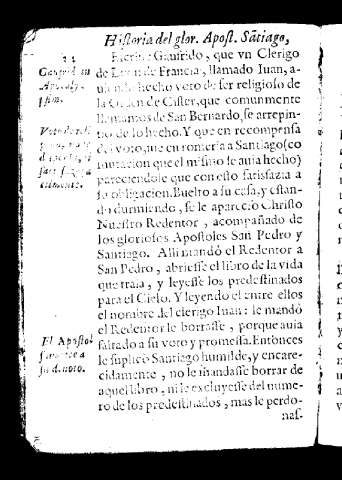 Historia del glor. Apost. Santiago,
Gaufrido, que vn Clerigo
de de Francia, llamado Iuan, a-
hecho voto de ser religioso de
la Orden de Cister, que comunmente
llamamos de San Bernardo, se arrepin-
tio de lo hecho. Y que en recompensa
del voto, que en romeria a Santiago (co
mutacion que el mismo se auia hecho)
pareciendole que con esto satisfazia a
su obligacion. Buelto a su casa, y estan-
do durmiendo, se le aparecio Christo
Nuestro Redentor, acompañado de
los gloriosos Apostoles San Pedro y
Santiago. Alli mandó el Redentor a
San Pedro, abriesse el libro de la vida
que traia, y leyesse los predestinados
para el Cielo. Y leyendo el entre ellos
el nombre del clerigo Iuan: le mandó
el Redentor le borrasse, porque auia
faltado a su voto y promessa. Entonces
le suplicò Santiago humilde, y encare-
cidamente, no le mandasse borrar de
aquel libro, ni le excluyesse del nume-
ro de los predestinados, mas le perdo-
nas.
El Apostol
su deuoto.